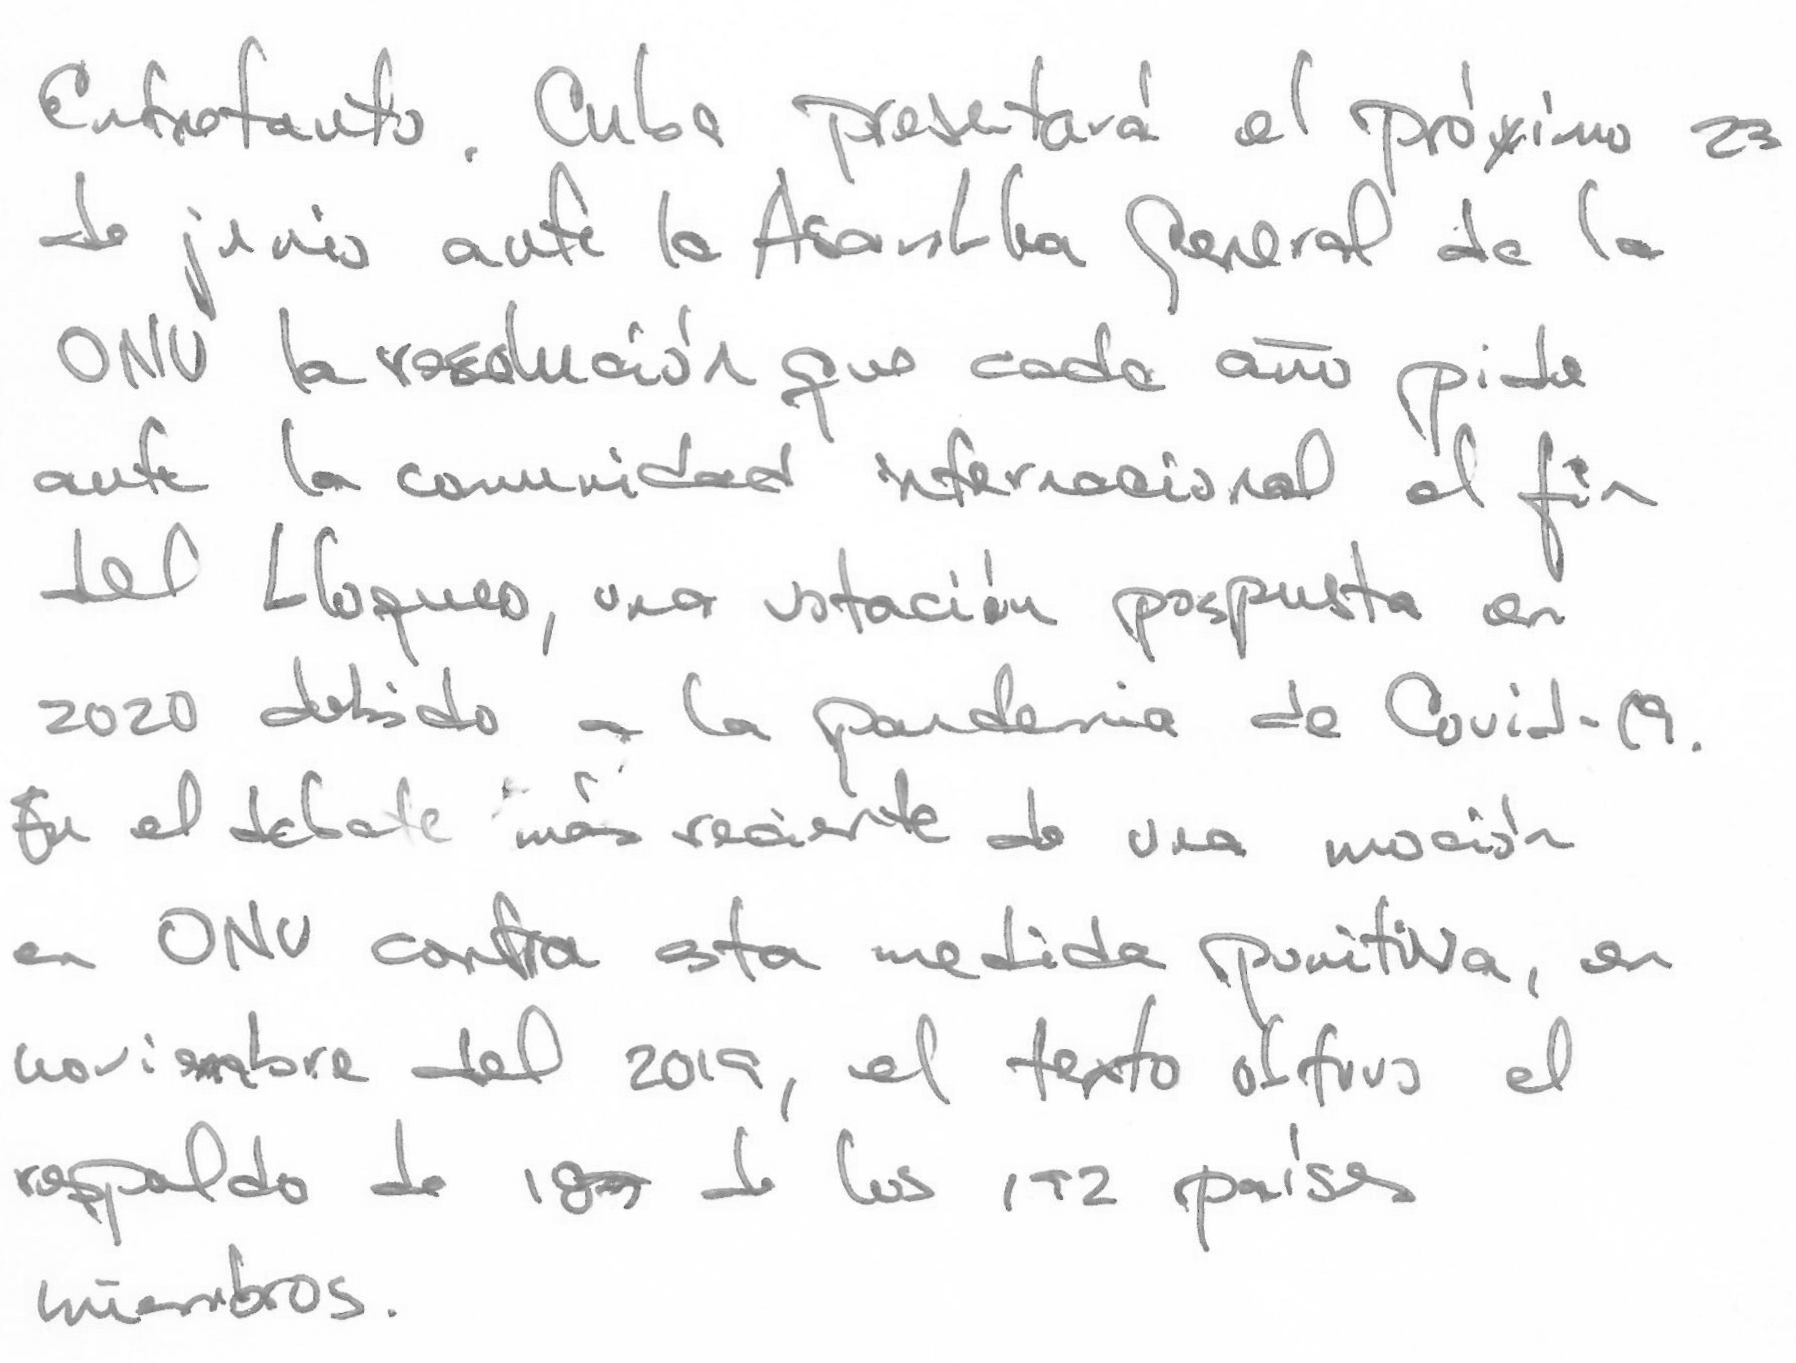 Entretanto. Cuba presentará el próximo 23
de junio ante la Asamblea General de la
ONU la resolución que cada año pide
ante la comunidad internacional el fin
del bloqueo, una votación pospuesta en
2020 debido a la pandemia de Covid-19.
En el debate más reciente de una moción
en ONU contra esta medida punitiva, en
noviembre del 2019, el texto obtuvo el
respaldo de 187 de los 192 países
miembros.